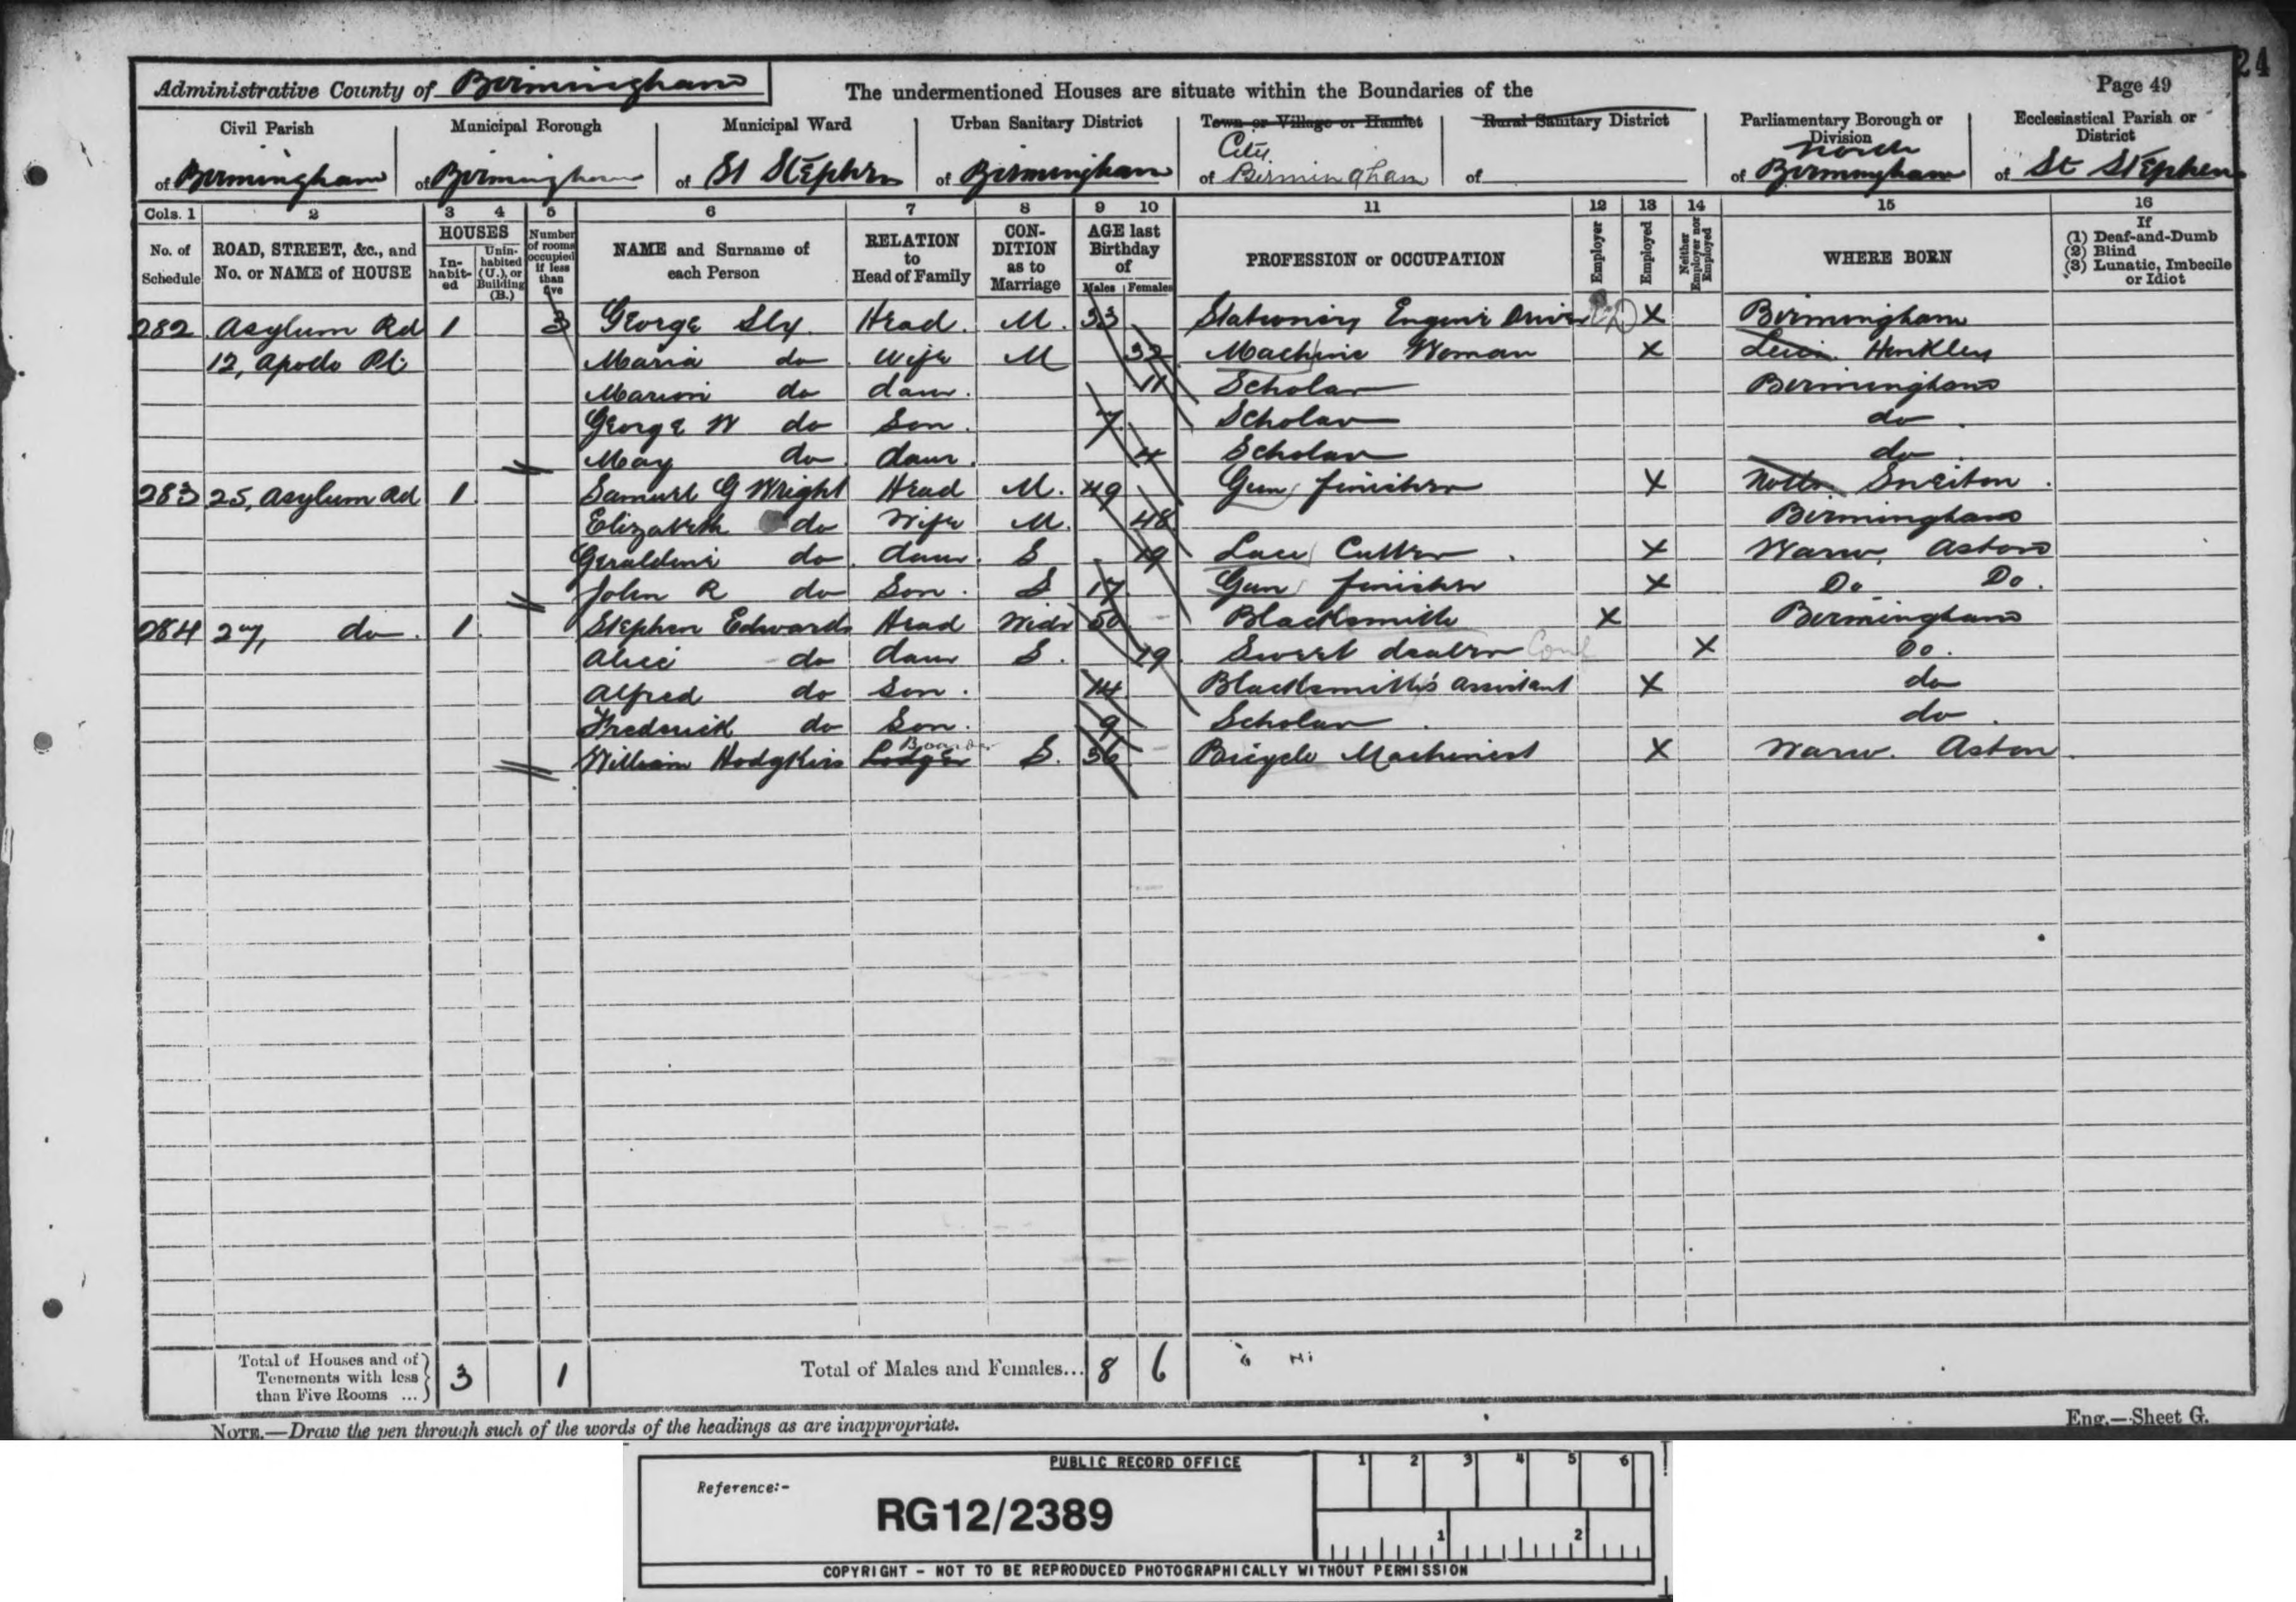 24
Administrative County of Birmingham The undermentioned Houses are situate within the Boundaries of the Page 49
Civil Parish Municipal Borough Municipal Ward Urban Sanitary District Town or Village or Hamlet Rural Sanitary District Parliamentary Borough or Division Ecclesiastical Parish or District
City North
of Birmingham of Birmingham of St Stephen of Birmingham of Birmingham of of Birmingham of St Stephen
Cols. 1 2 3 4 5 6 7 8 9 10 11 12 13 14 15 16
No. of Schedule ROAD, STREET, &c., and No. or NAME of HOUSE HOUSES In-habit-ed Unin-habited (U.), or Building (B.) Number of rooms occupied if less than five NAME and Surname of each Person RELATION to Head of Family CON-DITION as to Marriage AGE last Birthday of Males Females PROFESSION or OCCUPATION Employer Employed Neither Employer nor Employed WHERE BORN If (1) Deaf-and-Dumb (2) Blind (3) Lunatic, Imbecile or Idiot
282 Asylum Rd 1 3 George Sly Head M. 33 Stationary Engine Driver X Birmingham
12, Apollo Pl: Maria do Wife M 32 Machine Woman X Leic. Hinkley
Marion do daur. 11 Scholar Birmingham
George W do Son. 7 Scholar do
May do daur. 4 Scholar do
283 25, Asylum Rd 1 Samuel G Wright Head M. 49 Gun finisher X Notts. Sneiton
Elizabeth do Wife M. 48 Birmingham
Geraldine do daur. S 19 Lace Cutter X Warw. Aston
John R do Son. S 17 Gun finisher X Do Do.
284 27, do. 1 Stephen Edwards Head Widr 50 Blacksmith X Birmingham
Alice do daur S. 19 Sweet dealer X Do.
Alfred do Son. 14 Blacksmith's assistant X do
Frederick do Son. 9 Scholar do
William Hodgkins Lodger Boarder S. 36 Bicycle Machinist X Warw. Aston
Total of Houses and of Tenements with less than Five Rooms ... 3 1 Total of Males and Females... 8 6
NOTE.—Draw the pen through such of the words of the headings as are inappropriate. Eng.—Sheet G.
PUBLIC RECORD OFFICE 1 2 3 4 5 6
Reference:-
RG12/2389
1 2
COPYRIGHT - NOT TO BE REPRODUCED PHOTOGRAPHICALLY WITHOUT PERMISSION